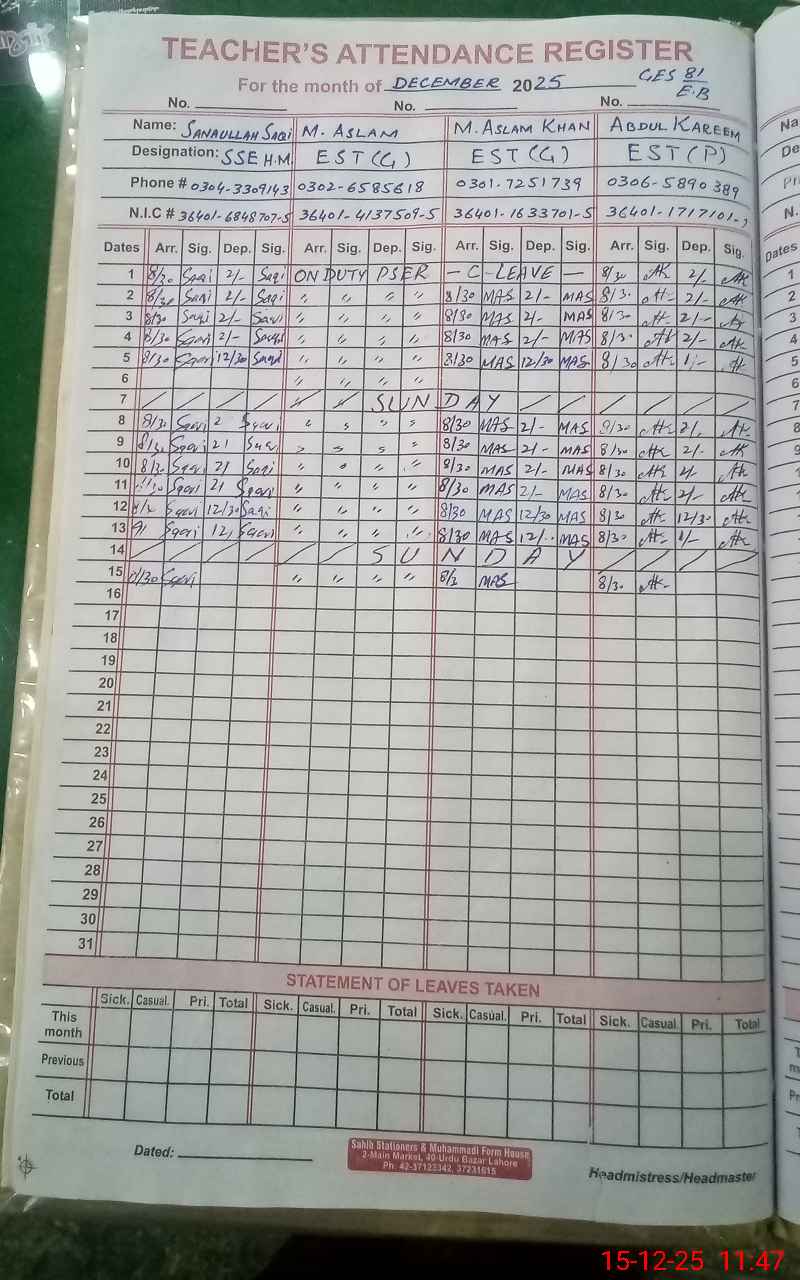 TEACHER'S ATTENDANCE REGISTER
For the month of DECEMBER 2025 GES 81/E.B
No. No. No.
Name: SANAULLAH SAQI M. ASLAM M. ASLAM KHAN ABDUL KAREEM
Designation: SSE H.M. EST (G) EST (G) EST (P)
Phone # 0304-3309143 0302-6585618 0301-7251739 0306-5890389
N.I.C # 36401-6848707-5 36401-4137509-5 36401-1633701-5 36401-1717101-
Dates Arr. Sig. Dep. Sig. Arr. Sig. Dep. Sig. Arr. Sig. Dep. Sig. Arr. Sig. Dep. Sig.
1 8/30 Saqi 2/- Saqi ON DUTY PSER - C - LEAVE - 8/30 2/-
2 8/30 Saqi 2/- Saqi " " " " 8/30 MAS 2/- MAS 8/30 2/-
3 8/30 Saqi 2/- Saqi " " " " 8/30 MAS 2/- MAS 8/30 2/-
4 8/30 Saqi 2/- Saqi " " " " 8/30 MAS 2/- MAS 8/30 2/-
5 8/30 Saqi 12/30 Saqi " " " " 8/30 MAS 12/30 MAS 8/30 1/-
6 " " " "
7 / / / / / / SUNDAY / / / / / /
8 8/30 Saqi 2 Saqi " " " " 8/30 MAS 2/- MAS 8/30 2/-
9 8/30 Saqi 2/ Saqi " " " " 8/30 MAS 2/- MAS 8/30 2/-
10 8/30 Saqi 2/ Saqi " " " " 8/30 MAS 2/- MAS 8/30
11 Saqi 2/ Saqi " " " " 8/30 MAS 2/- MAS 8/30 2/-
12 Saqi 12/30 Saqi " " " " 8/30 MAS 12/30 MAS 8/30 12/30
13 Saqi 12/ Saqi " " " " 8/30 MAS 12/- MAS 8/30 1/-
14 / / / / / / SUNDAY / / / /
15 8/30 Saqi " " " " 8/3 MAS 8/30
16
17
18
19
20
21
22
23
24
25
26
27
28
29
30
31
STATEMENT OF LEAVES TAKEN
Sick. Casual. Pri. Total Sick. Casual. Pri. Total Sick. Casual. Pri. Total Sick. Casual. Pri. Total
This month
Previous
Total
Dated:
Sahib Stationers & Muhammadi Form House
2-Main Market, 40-Urdu Bazar Lahore
Ph: 42-37123342, 37231615
Headmistress/Headmaster
15-12-25 11:47